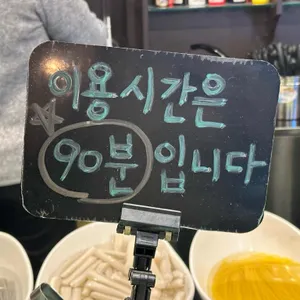 이용시간은
90분 입니다